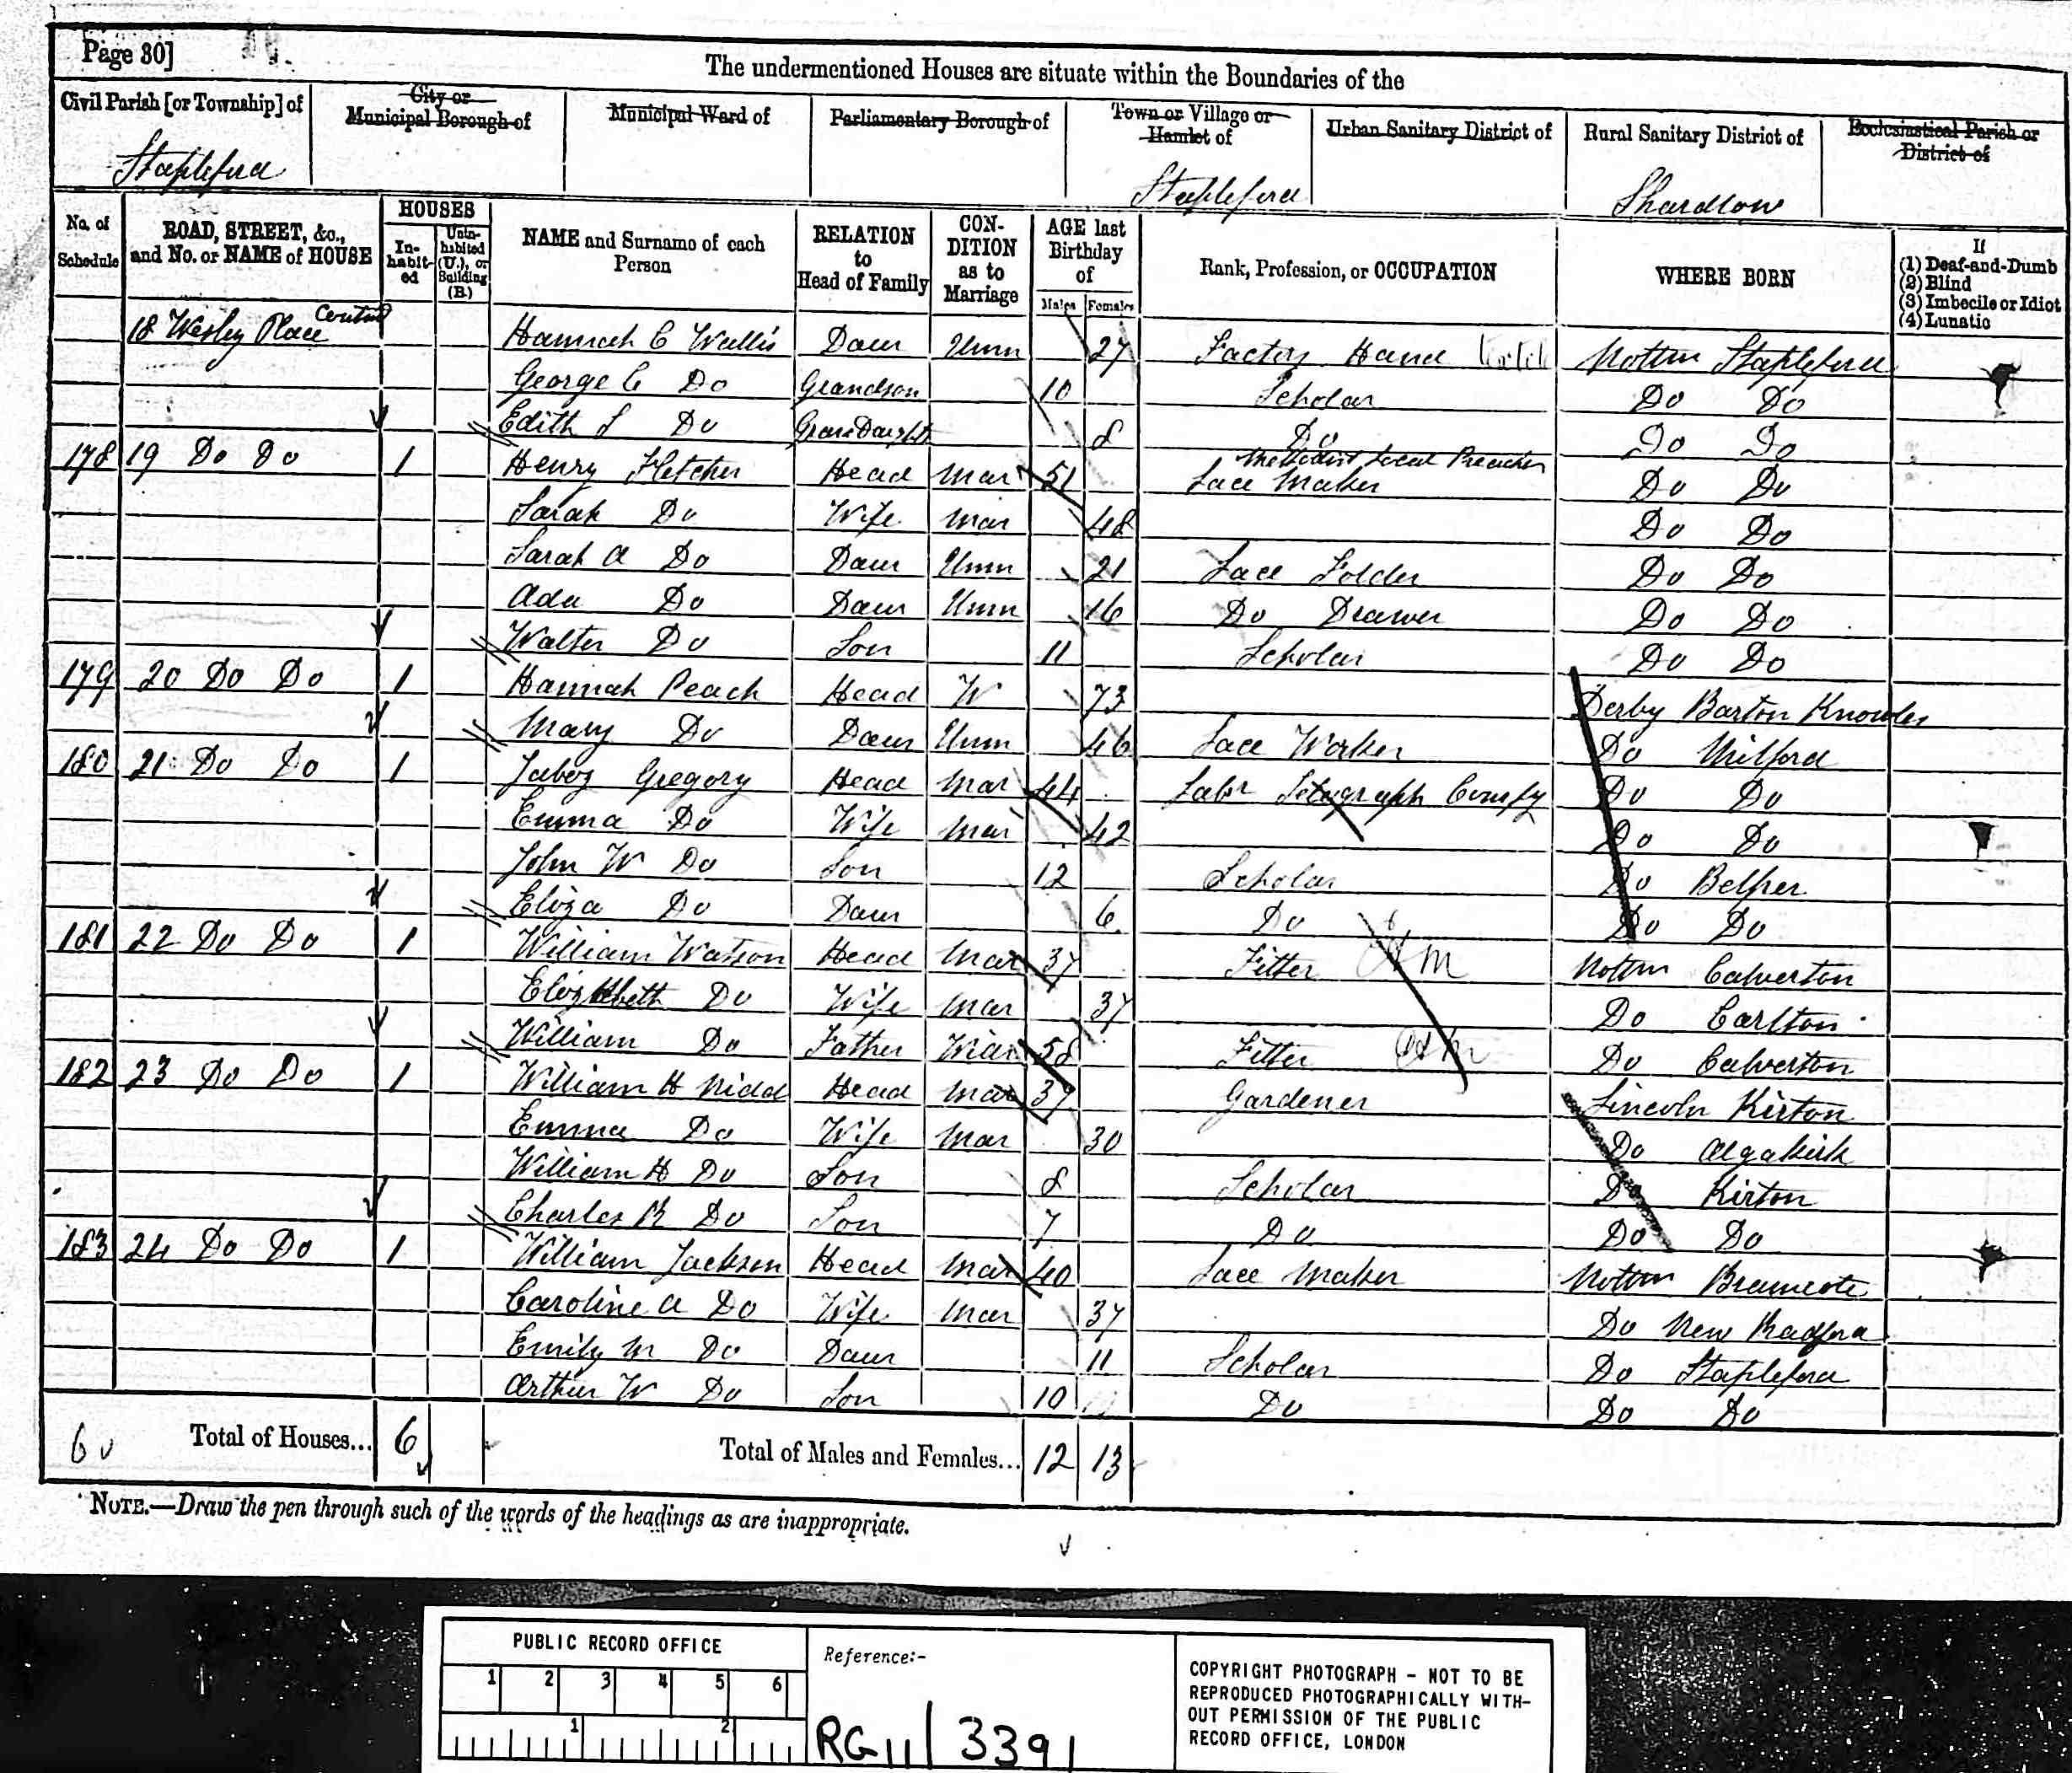 Page 30]
The undermentioned Houses are situate within the Boundaries of the
Civil Parish [or Township] of
City or Municipal Borough of
Municipal Ward of
Parliamentary Borough of
Town or Village or Hamlet of
Urban Sanitary District of
Rural Sanitary District of
Ecclesiastical Parish or District of
Stapleford Stapleford Shardlow
No. of Schedule
ROAD, STREET, &c., and No. or NAME of HOUSE
HOUSES
In-habit-ed
Unin-habited (U.), or Building (B.)
NAME and Surname of each Person
RELATION to Head of Family
CON-DITION as to Marriage
AGE last Birthday of
Males Females
Rank, Profession, or OCCUPATION
WHERE BORN
If
(1) Deaf-and-Dumb
(2) Blind
(3) Imbecile or Idiot
(4) Lunatic
18 Wesley Place Contind Hannah C Wallis Daur Unm 27 Factory Hand Nottm Stapleford
George C Do Grandson 10 Scholar Do Do
Edith S Do Grand Daught 8 Do Do Do
Methodist Local Preacher
178 19 Do Do 1 Henry Fletcher Head Mar 51 Lace Maker Do Do
Sarah Do Wife Mar 48 Do Do
Sarah A Do Daur Unm 21 Lace Folder Do Do
Ada Do Daur Unm 16 Do Drawer Do Do
Walter Do Son 11 Scholar Do Do
179 20 Do Do 1 Hannah Peach Head W 73 Derby Barton Knowles
Mary Do Daur Unm 46 Lace Worker Do Milford
180 21 Do Do 1 Jabez Gregory Head Mar 44 Labr Telegraph Compy Do Do
Emma Do Wife Mar 42 Do Do
John W Do Son 12 Scholar Do Belper
Eliza Do Daur 6 Do Do Do
181 22 Do Do 1 William Watson Head Mar 37 Fitter Nottm Calverton
Elizabeth Do Wife Mar 37 Do Carlton
William Do Father Mar 58 Fitter Do Calverton
182 23 Do Do 1 William H Nidd Head Mar 39 Gardener Lincoln Kirton
Emma Do Wife Mar 30 Do Algakirk
William H Do Son 8 Scholar Do Kirton
Charles R Do Son 7 Do Do Do
183 24 Do Do 1 William Jackson Head Mar 40 Lace Maker Nottm Bramcote
Caroline A Do Wife Mar 37 Do New Radford
Emily M Do Daur 11 Scholar Do Stapleford
Arthur W Do Son 10 Do Do Do
6 Total of Houses... 6 Total of Males and Females... 12 13
NOTE.—Draw the pen through such of the words of the headings as are inappropriate.
PUBLIC RECORD OFFICE
1 2 3 4 5 6
1 2
Reference:-
RG 11 / 3391
COPYRIGHT PHOTOGRAPH - NOT TO BE
REPRODUCED PHOTOGRAPHICALLY WITH-
OUT PERMISSION OF THE PUBLIC
RECORD OFFICE, LONDON